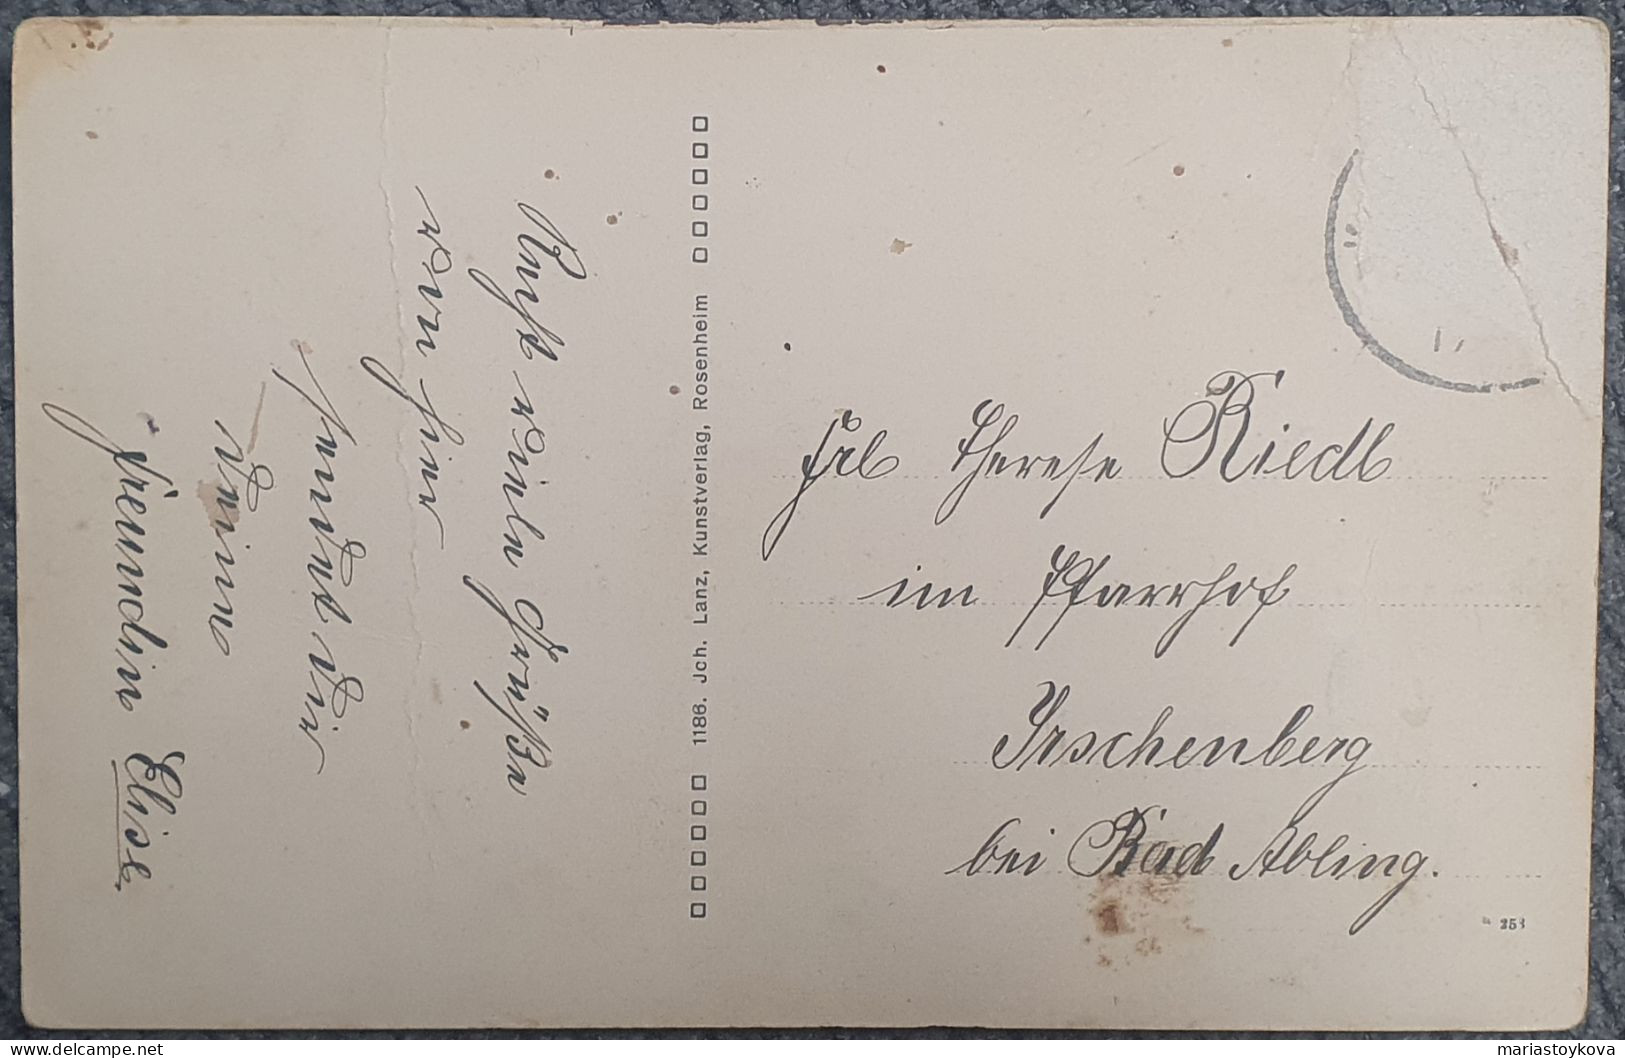 Recht viele Grüße
von hier
sendet dir
deine
Freundin Elise
1186. Jch. Lanz, Kunstverlag, Rosenheim
Frl Therese Riedl
im Pfarrhof
Irschenberg
bei Bad Abling.
253
mariastoykova